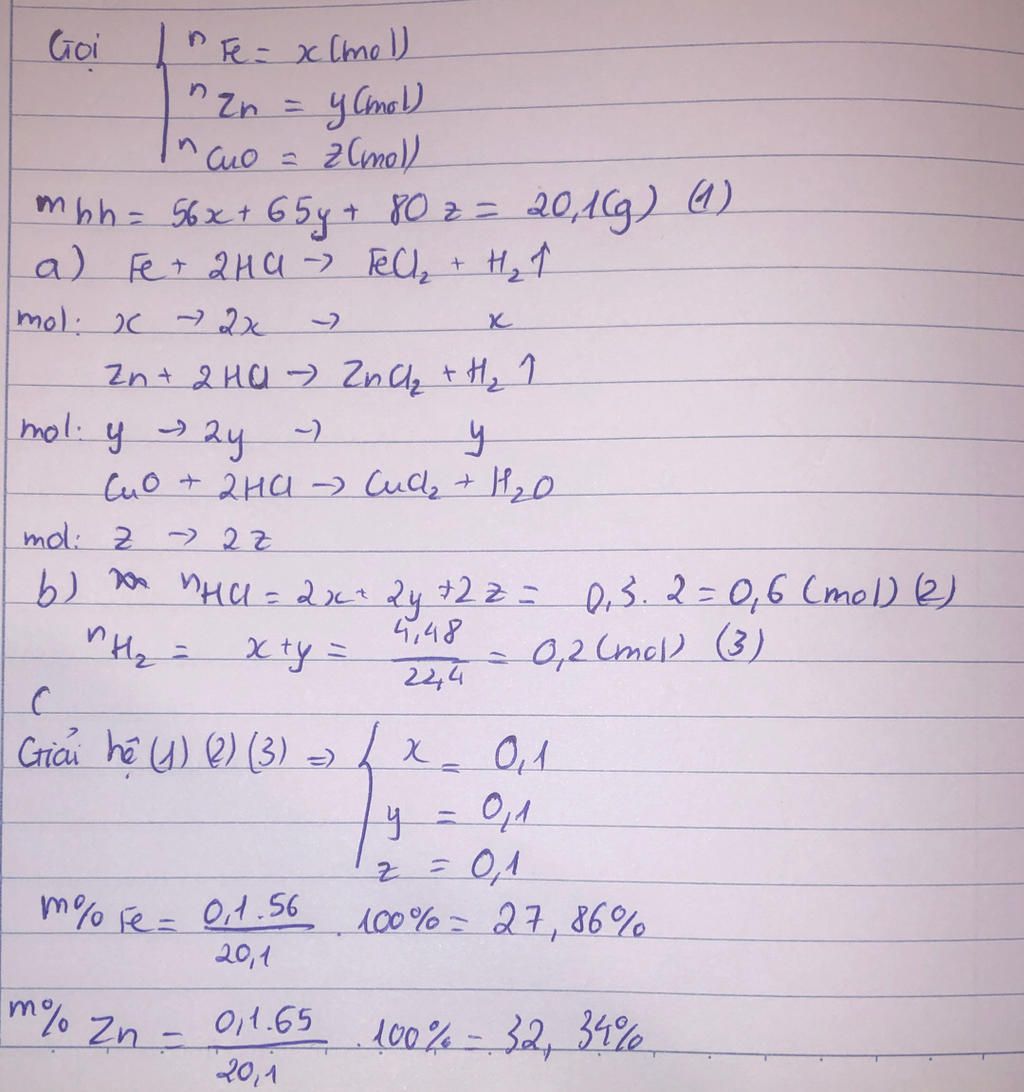 Gọi { nFe = x(mol)
nZn = y(mol)
nCuO = z(mol)
mhh = 56x + 65y + 80z = 20,1(g) (1)
a) Fe + 2HCl → FeCl₂ + H₂↑
mol: x → 2x → x
Zn + 2HCl → ZnCl₂ + H₂↑
mol: y → 2y → y
CuO + 2HCl → CuCl₂ + H₂O
mol: z → 2z
b) nHCl = 2x + 2y + 2z = 0,3 . 2 = 0,6 (mol) (2)
nH₂ = x + y = 4,48/22,4 = 0,2 (mol) (3)
(
Giải hệ (1) (2) (3) => { x = 0,1
y = 0,1
z = 0,1
m% Fe = 0,1.56/20,1 . 100% = 27,86%
m% Zn = 0,1.65/20,1 . 100% = 32,34%